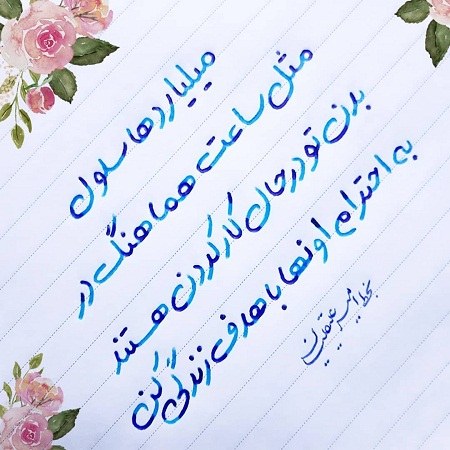 میلیاردها سلول
مثل ساعت هماهنگ در
بدن تو در حال کار کردن هستند
به احترام اونها با هدف زندگی کن
بخط امیر